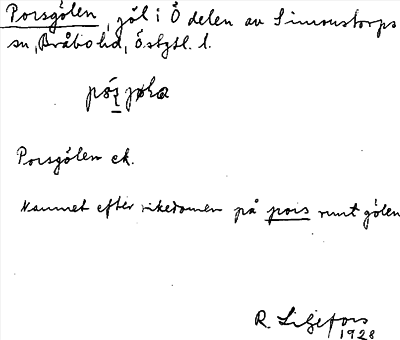 Porsgölen, göl i Ö delen av Simonstorps
sn, Bråbo hd, Östgtl. l.
Porsgölen ek.
Namnet efter rikedomen på pors runt gölen
R. Liljefors
1928